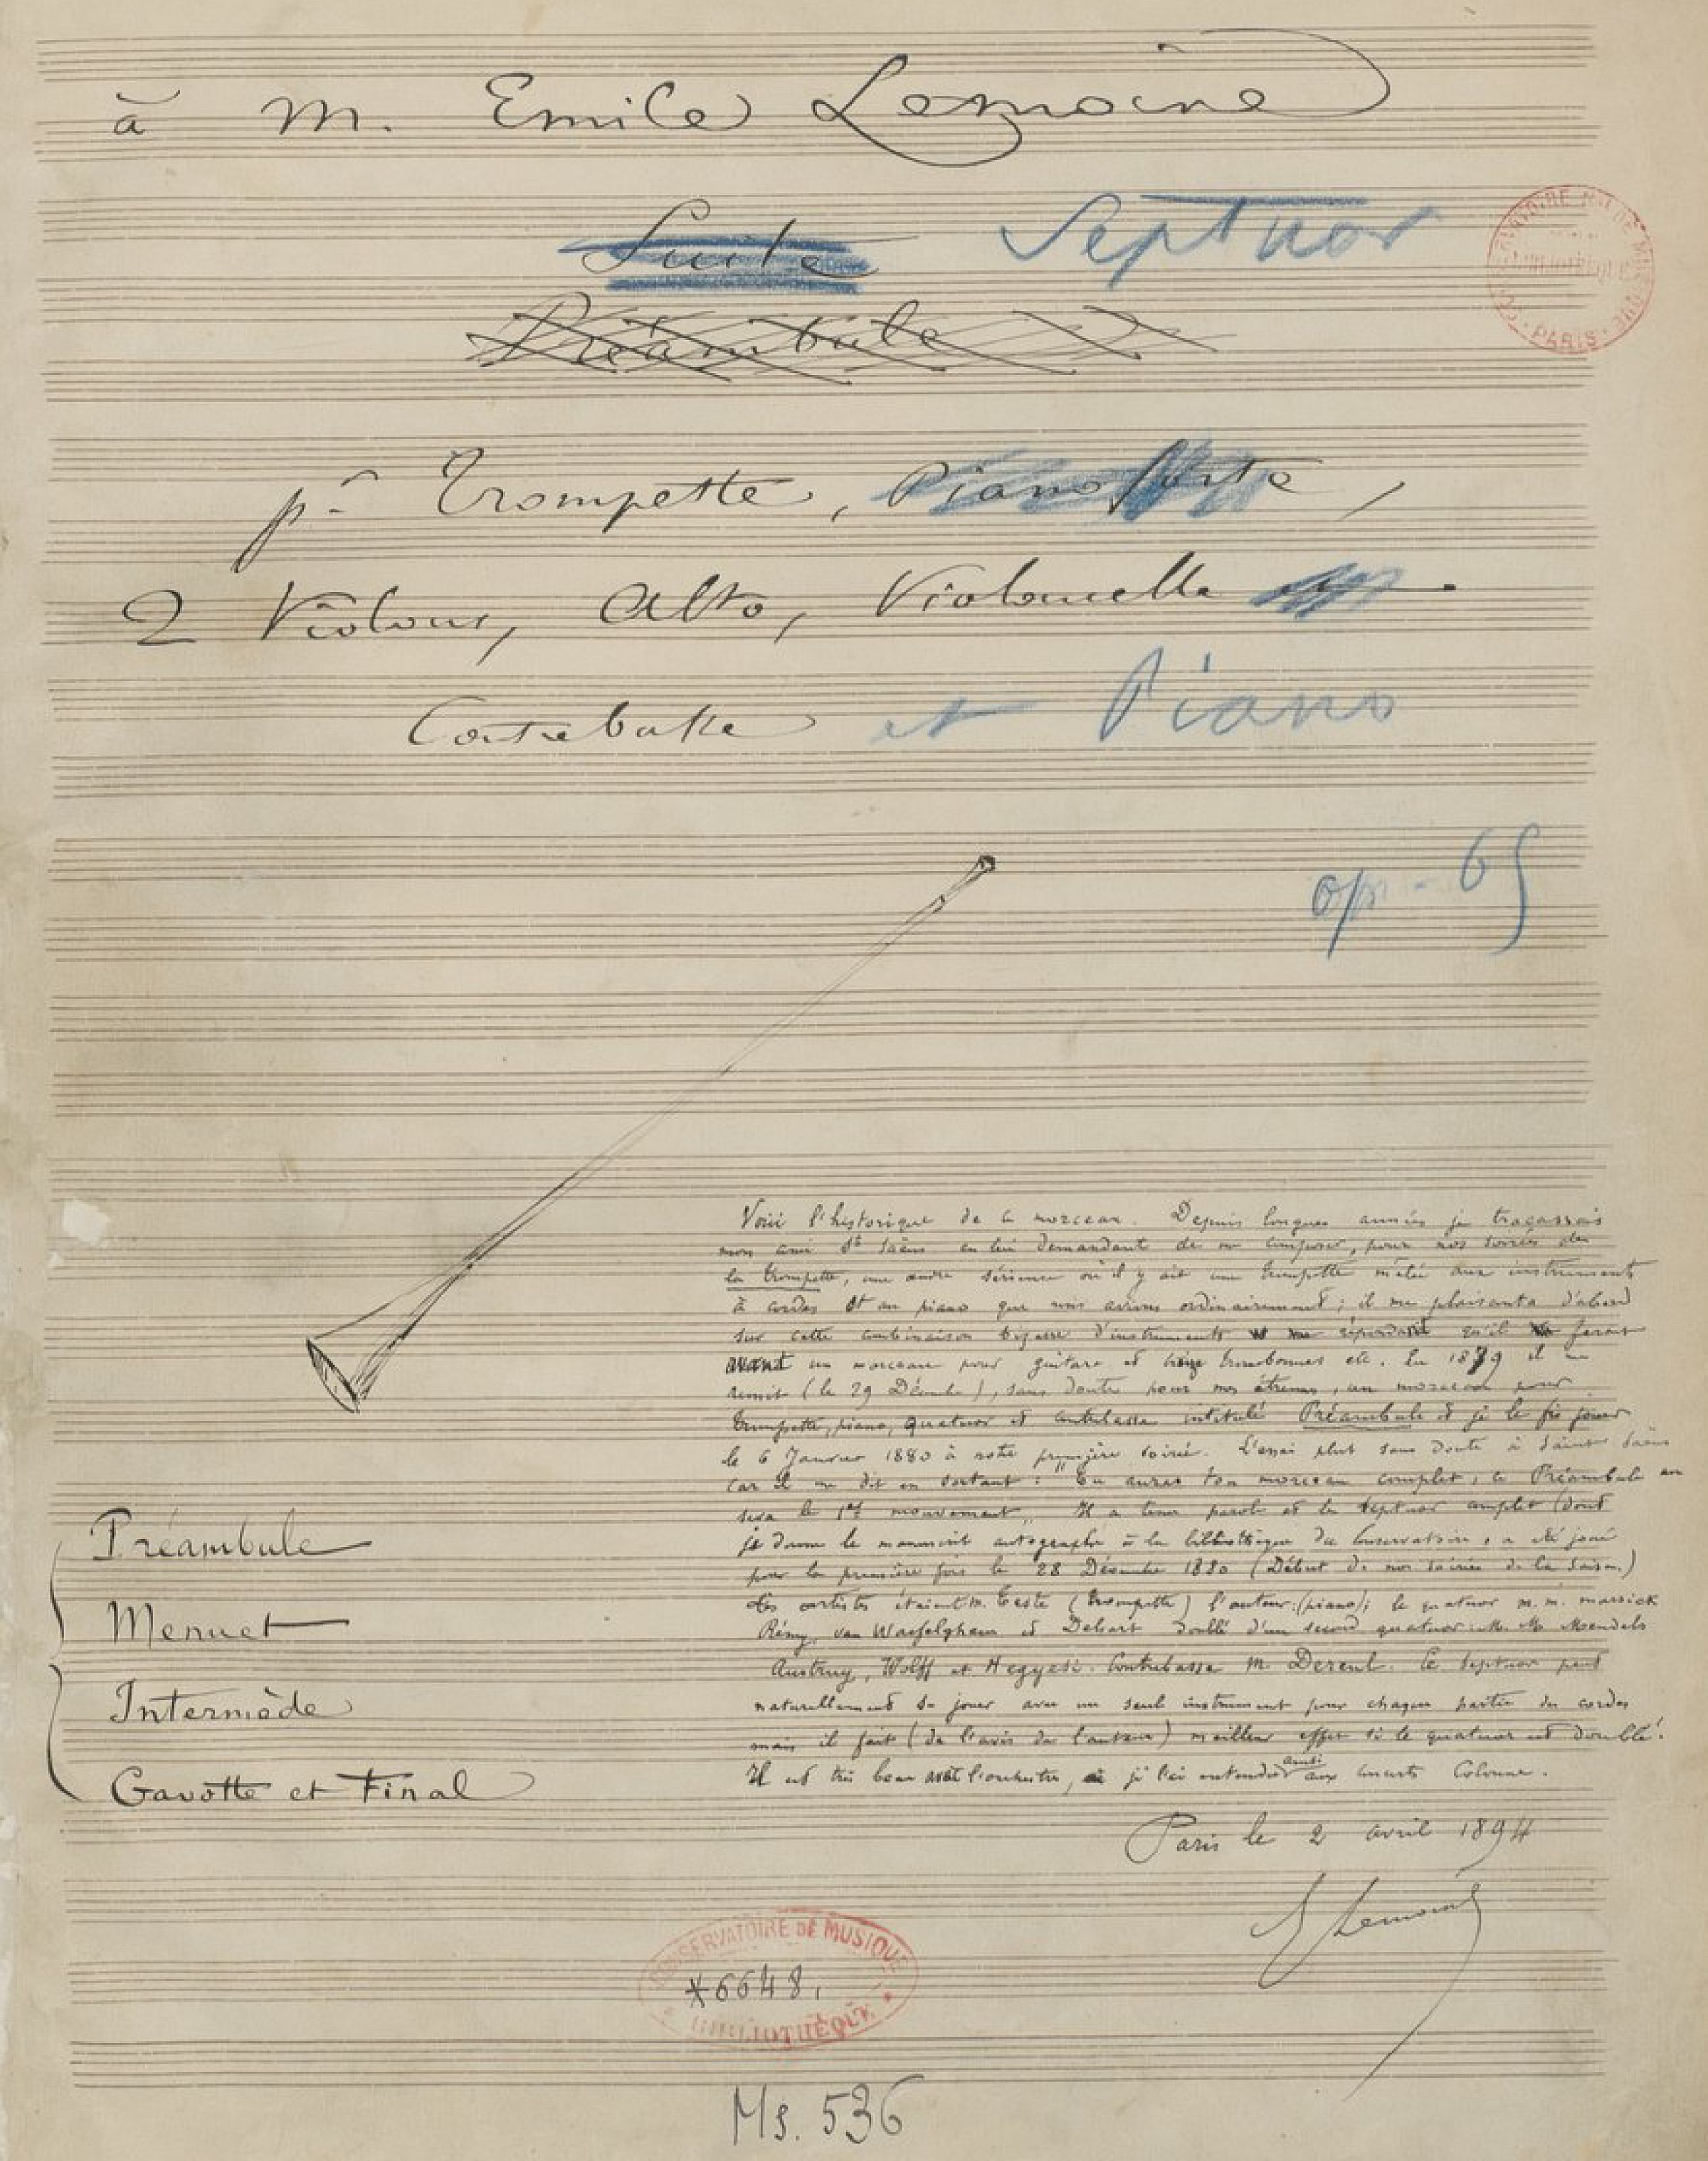 à M. Emile Lemoine
Suite Septuor
Préambule
pr Trompette, Piano forte,
2 Violons, Alto, Violoncelle
Contrebasse et Piano
op. 65
Voici l'historique de ce morceau. Depuis longues années je tracassais
mon ami St Saëns en lui demandant de me composer, pour nos soirées de
la trompette, une œuvre sérieuse où il y ait une trompette mêlée aux instruments
à cordes et au piano que nous avions ordinairement ; il me plaisanta d'abord
sur cette combinaison bizarre d'instruments me répondant qu'il ferait
avant un morceau pour guitare et treize trombones etc. En 1879 il me
remit (le 29 Décembre), sans doute pour mes étrennes, un morceau pour
trompette, piano, quatuor et contrebasse intitulé Préambule et je le fis jouer
le 6 Janvier 1880 à notre première soirée. L'essai plut sans doute à Saint Saëns
car il me dit en sortant : "Tu auras ton morceau complet, le Préambule en
sera le 1er mouvement". Il a tenu parole et le septuor complet (dont
je donne le manuscrit autographe à la bibliothèque du Conservatoire, a été joué
pour la première fois le 28 Décembre 1880 (Début de nos soirées de la saison.)
Les artistes étaient M. Teste (trompette) l'auteur (piano); le quatuor M. M. Marsick
Rémy, van Waefelghem et Delsart doublé d'un second quatuor : M. M. Mendels
Austruy, Wolff et Hegyesi. Contrebasse M. Dereul. Ce septuor peut
naturellement se jouer avec un seul instrument pour chaque partie de cordes
mais il fait (de l'avis de l'auteur) meilleur effet si le quatuor est doublé.
Il est très beau avec l'orchestre, je l'ai entendu ainsi aux concerts Colonne.
Paris le 2 avril 1894
E Lemoine
Préambule
Menuet
Intermède
Gavotte et Final
CONSERVATOIRE DE MUSIQUE
*6648.
BIBLIOTHÈQUE
Ms. 536
PARIS